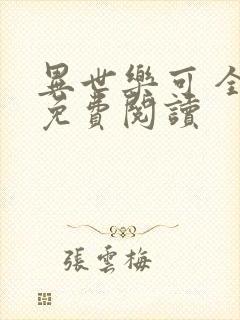 異世樂可 全
免費閱讀
張雲梅